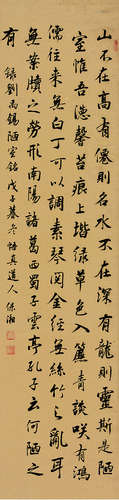 山不在高有僊則名水不在深有龍則靈斯是陋
室惟吾德馨苔痕上堦綠草色入簾青談咲有鴻
儒往来無白丁可以調素琴閱金經無絲竹之亂耳
無案牘之勞形南陽諸葛西蜀子雲亭孔子云何陋之
有
錄劉禹錫陋室銘 戊子暮冬悟真道人保湘